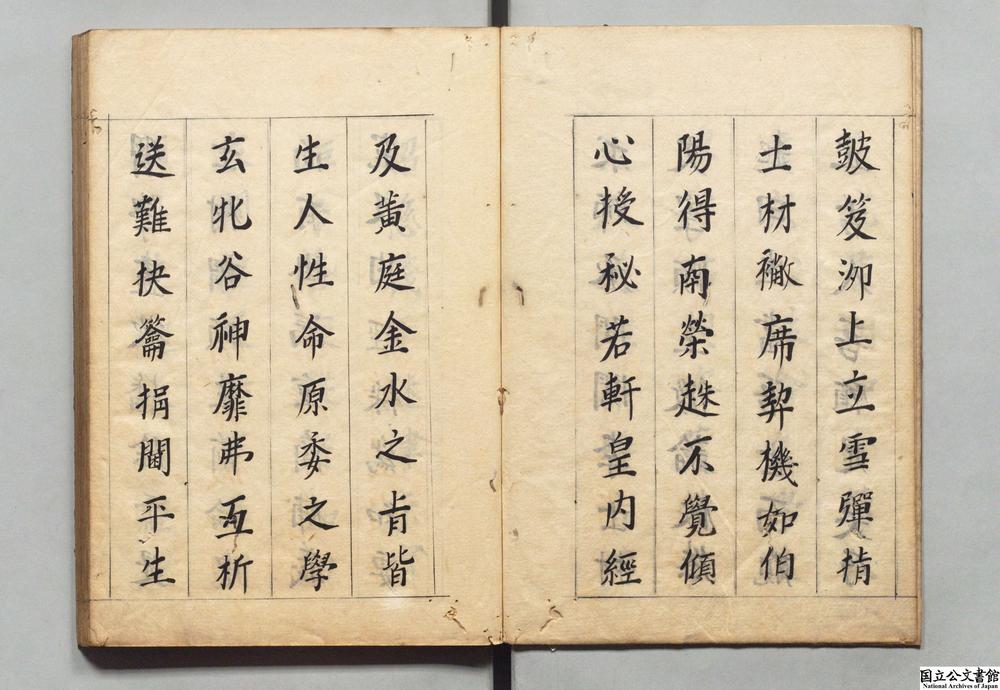 鼓笈泖上立雪彈指
士材襒席契機如伯
陽得南榮趎不覺傾
心授秘若軒皇內經
及黃庭金水之肯皆
生人性命原委之學
玄牝谷神靡弗亙析
送難抉籥捐閫平生
国立公文書館
National Archives of Japan